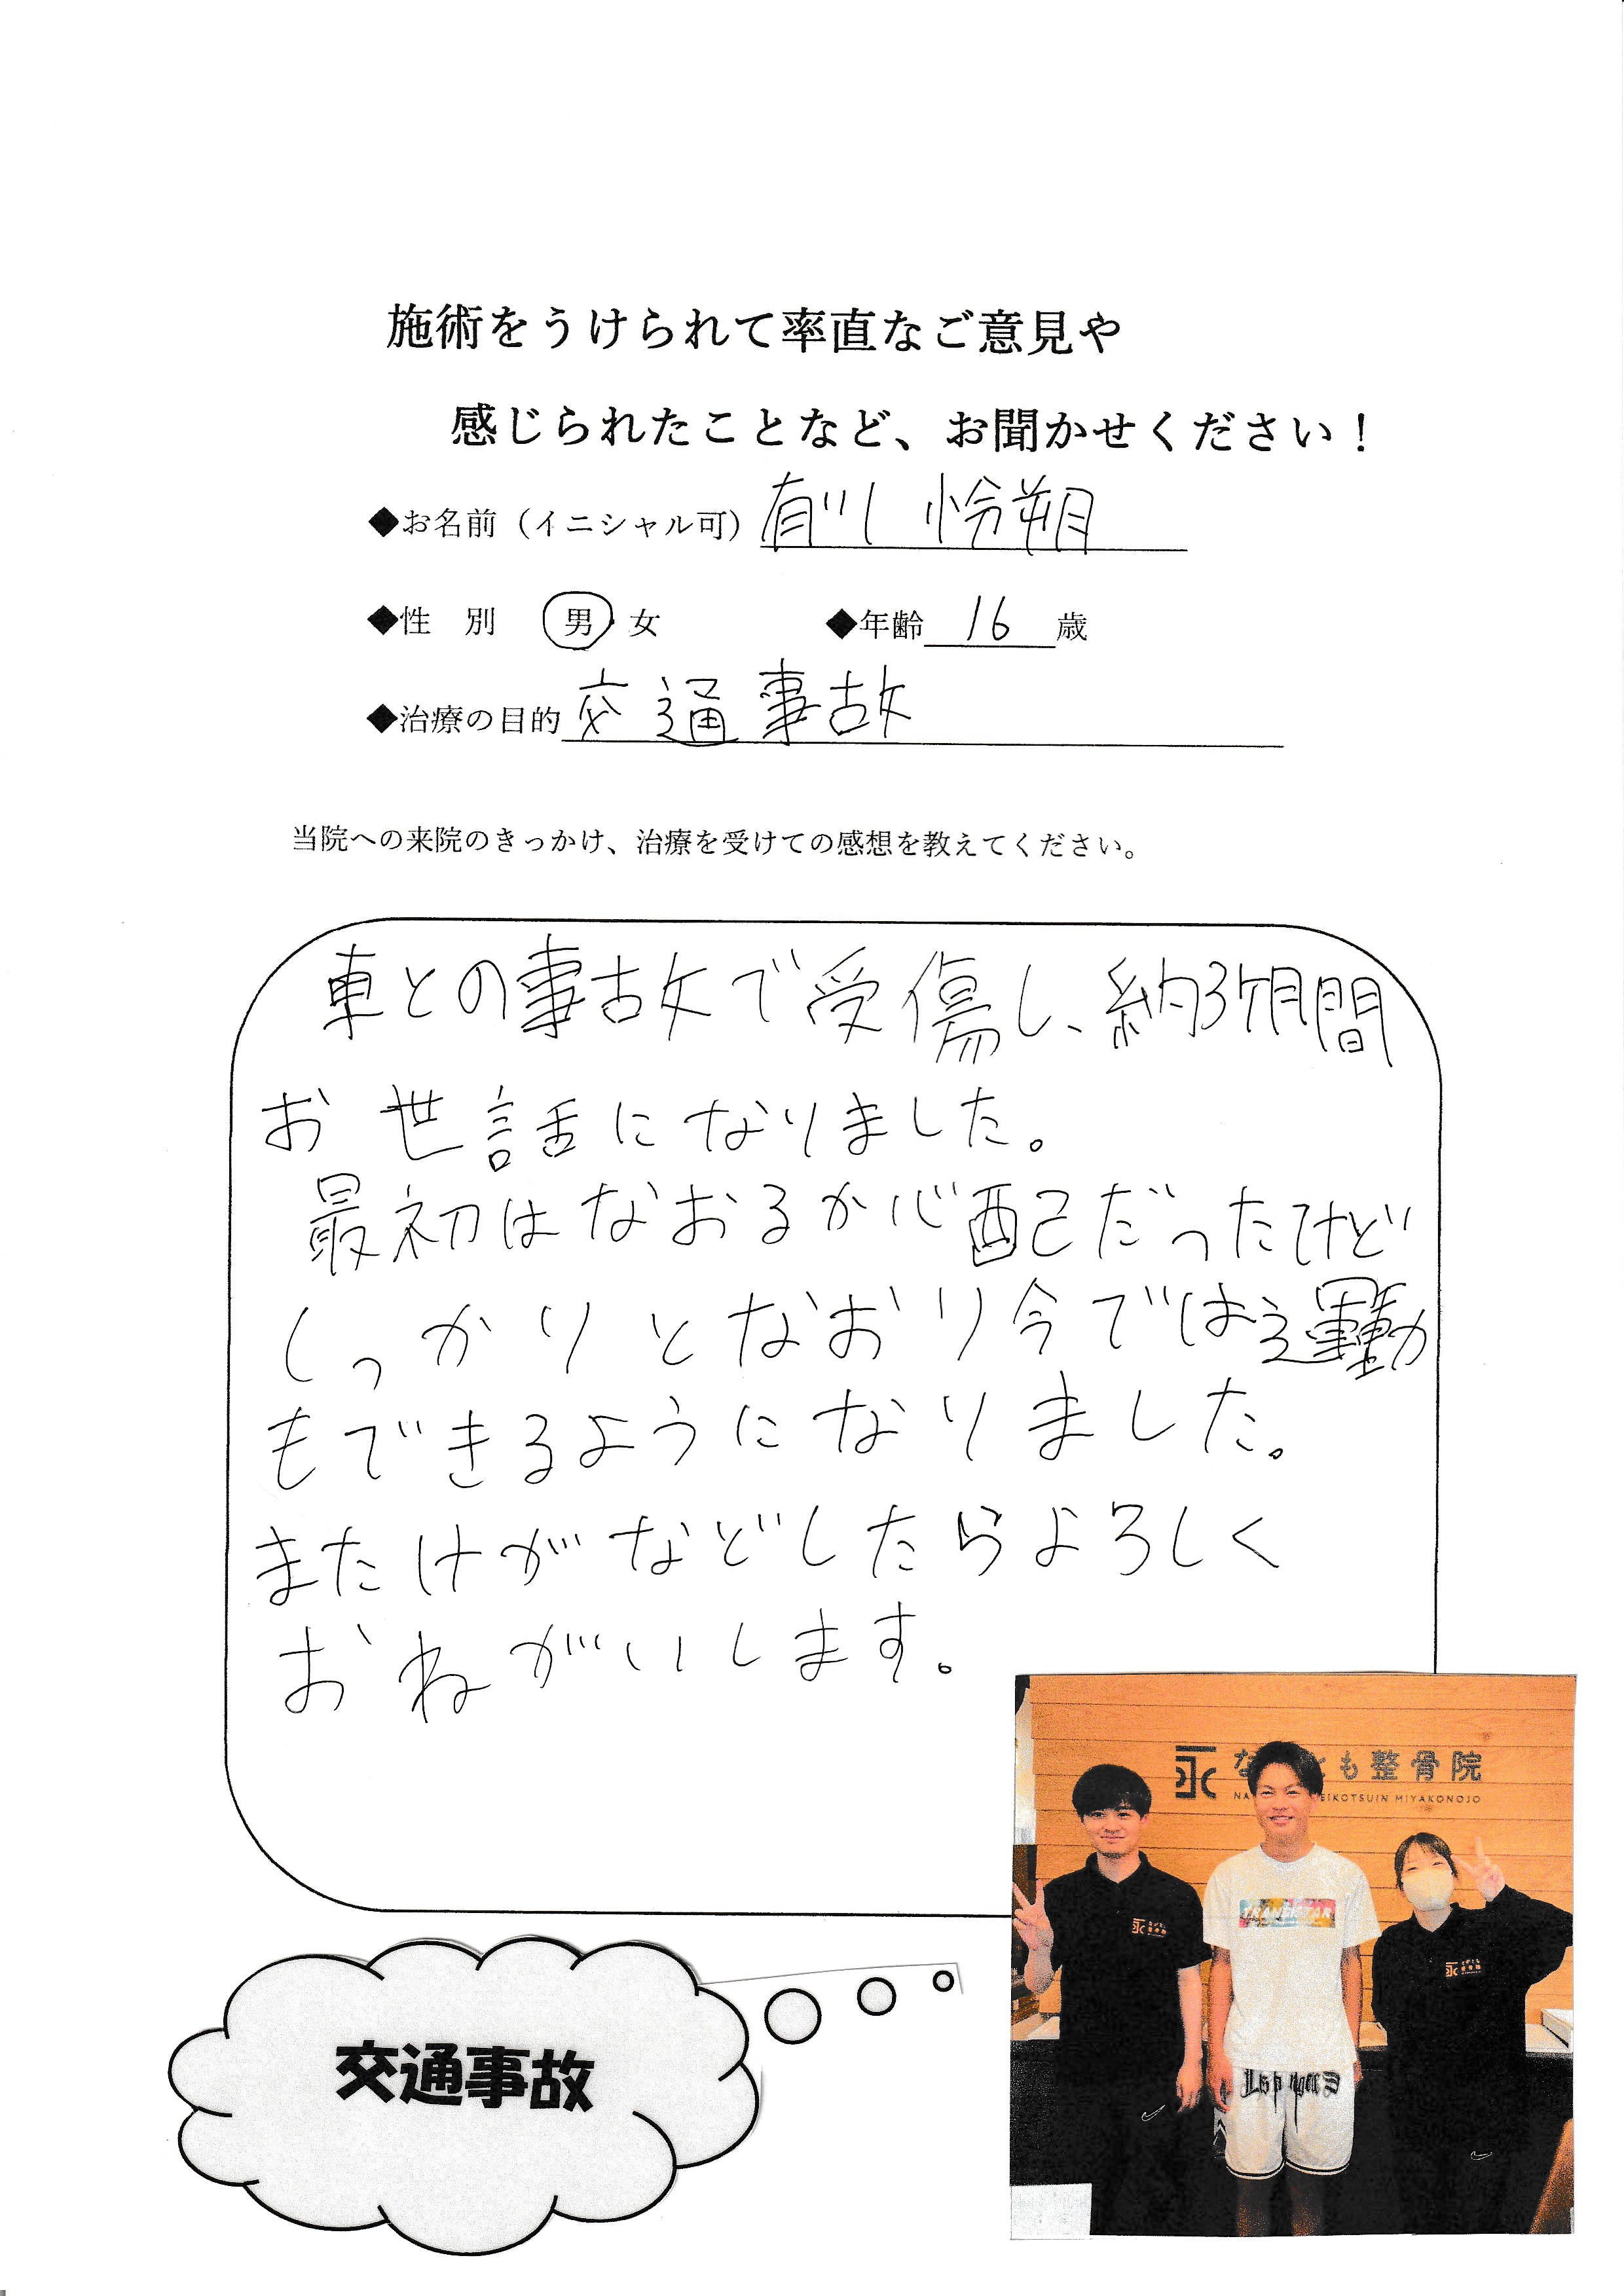 施術をうけられて率直なご意見や
感じられたことなど、お聞かせください！
◆お名前（イニシャル可）有川 怜朔
◆性 別 男・女 ◆年齢 16 歳
◆治療の目的 交通事故
当院への来院のきっかけ、治療を受けての感想を教えてください。
車との事故で受傷し、約3ヶ月間
お世話になりました。
最初はなおるか心配だったけど
しっかりとなおり今では運動
もできるようになりました。
またけがなどしたらよろしく
おねがいします。
永 な とも整骨院
NA EIKOTSUIN MIYAKONOJO
TRANSISTAR
交通事故